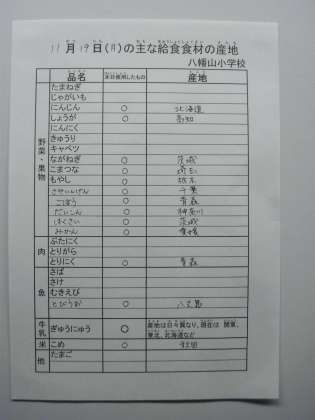 11月19日(月)の主な給食食材の産地
八幡山小学校
品名 本日使用したもの 産地
野菜・果物
たまねぎ
じゃがいも
にんじん ○ 北海道
しょうが ○ 高知
にんにく
きゅうり
キャベツ
ながねぎ ○ 茨城
こまつな ○ 埼玉
もやし ○ 栃木
さやいんげん ○ 千葉
ごぼう ○ 青森
だいこん ○ 神奈川
はくさい ○ 茨城
みかん ○ 愛媛
肉
ぶたにく
とりがら
とりにく ○ 青森
魚
さば
さけ
むきえび
とびうお ○ 八丈島
牛乳 ぎゅうにゅう ○ 産地は日々異なり、現在は 関東、
東北、北海道など
米 こめ ○ 秋田
他 たまご